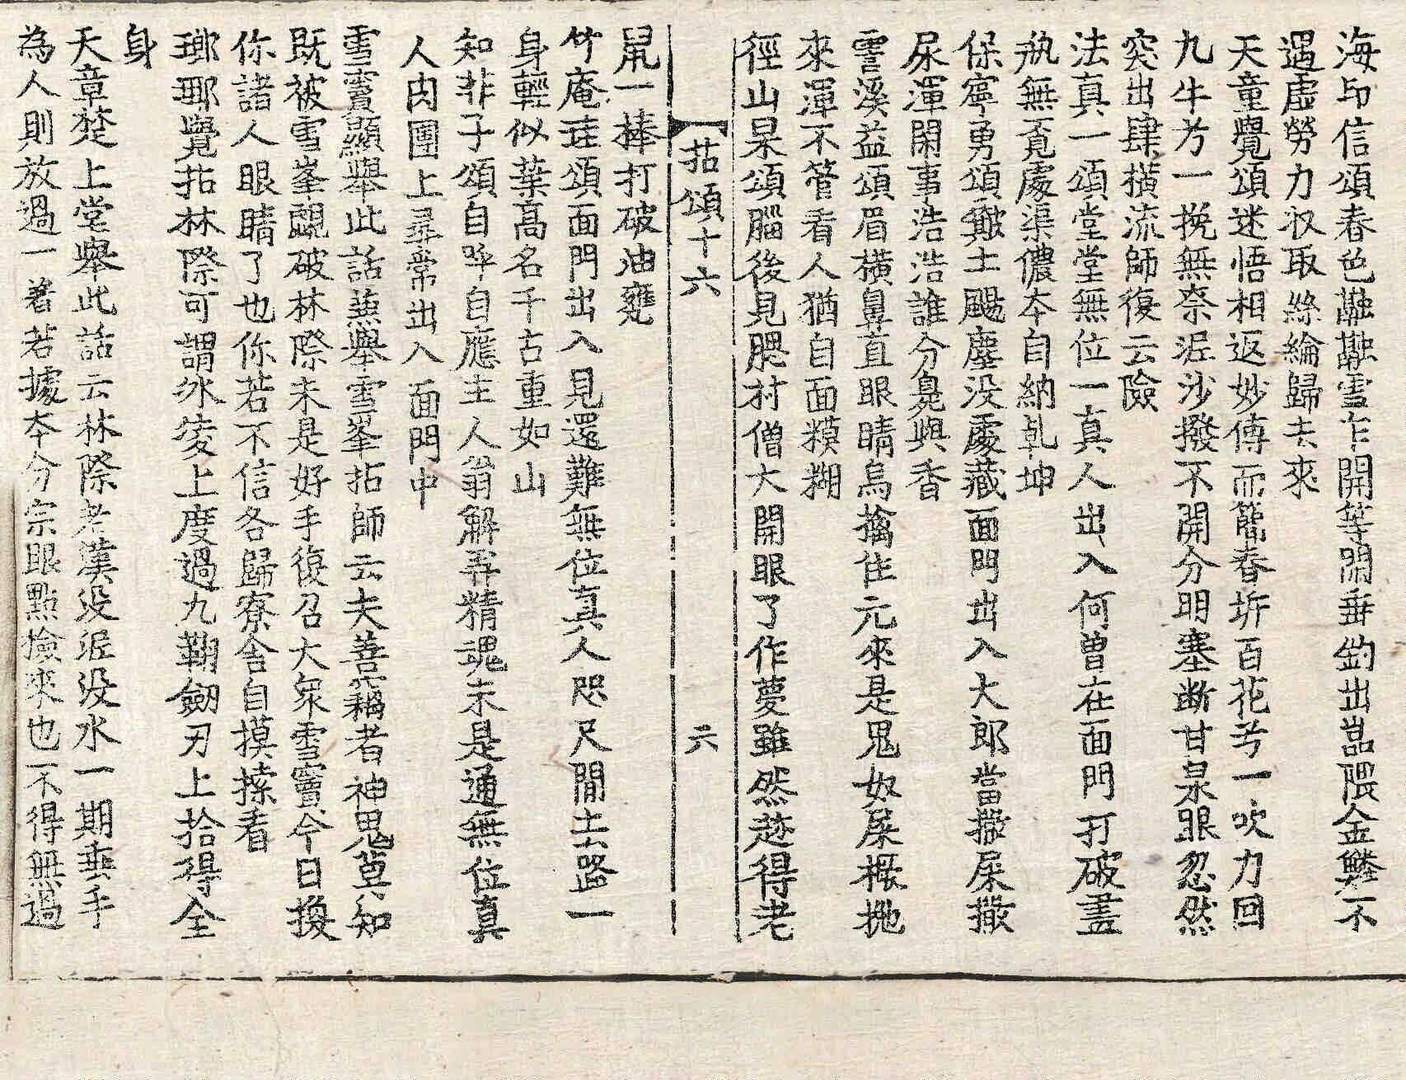 海印信頌春色融融雪乍開等閑垂釣出嵓隈金鱗不
遇虛勞力収取絲綸歸去來
天童覺頌迷悟相返妙傳而簡春坼百花兮一吹力回
九牛兮一挽無柰泥沙撥不開分明塞斷甘泉眼忽然
突出肆橫流師復云險
法真一頌堂堂無位一真人出入何曾在面門打破盡
執無覔處渠儂夲自納乹坤
保寧勇頌皾土颺塵没處藏面門出入大郎當撒屎撒
尿渾閑事浩浩誰分臭與香
雲溪益頌眉橫鼻直眼睛烏擒住元來是鬼奴屎橛抛
來渾不管看人猶自面模糊
徑山杲頌腦後見腮村僧大開眼了作夢雖然趂得老
拈頌十六 六
鼠一棒打破油甕
竹庵珪頌面門出入見還難無位真人咫尺閒去路一
身輕似葉髙名千古重如山
知非子頌自呼自應主人翁解弄精魂未是通無位真
人肉團上尋常出入面門中
雪竇顯舉此話兼舉雪峯拈師云夫善竊者神鬼莫知
既被雪峯覷破林際未是好手復召大衆雪竇今日換
你諸人眼睛了也你若不信各歸寮舍自摸搽看
瑯琊覺拈林際可謂氷凌上度過九鞠劒刃上拾得全
身
天章楚上堂舉此話云林際老漢没泥没水一期垂手
為人則放過一著若據夲分宗眼點撿來也不得無過